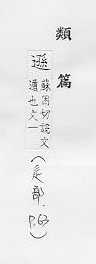 類篇
遜
蘇困切說文
遁也文一
(辵部,